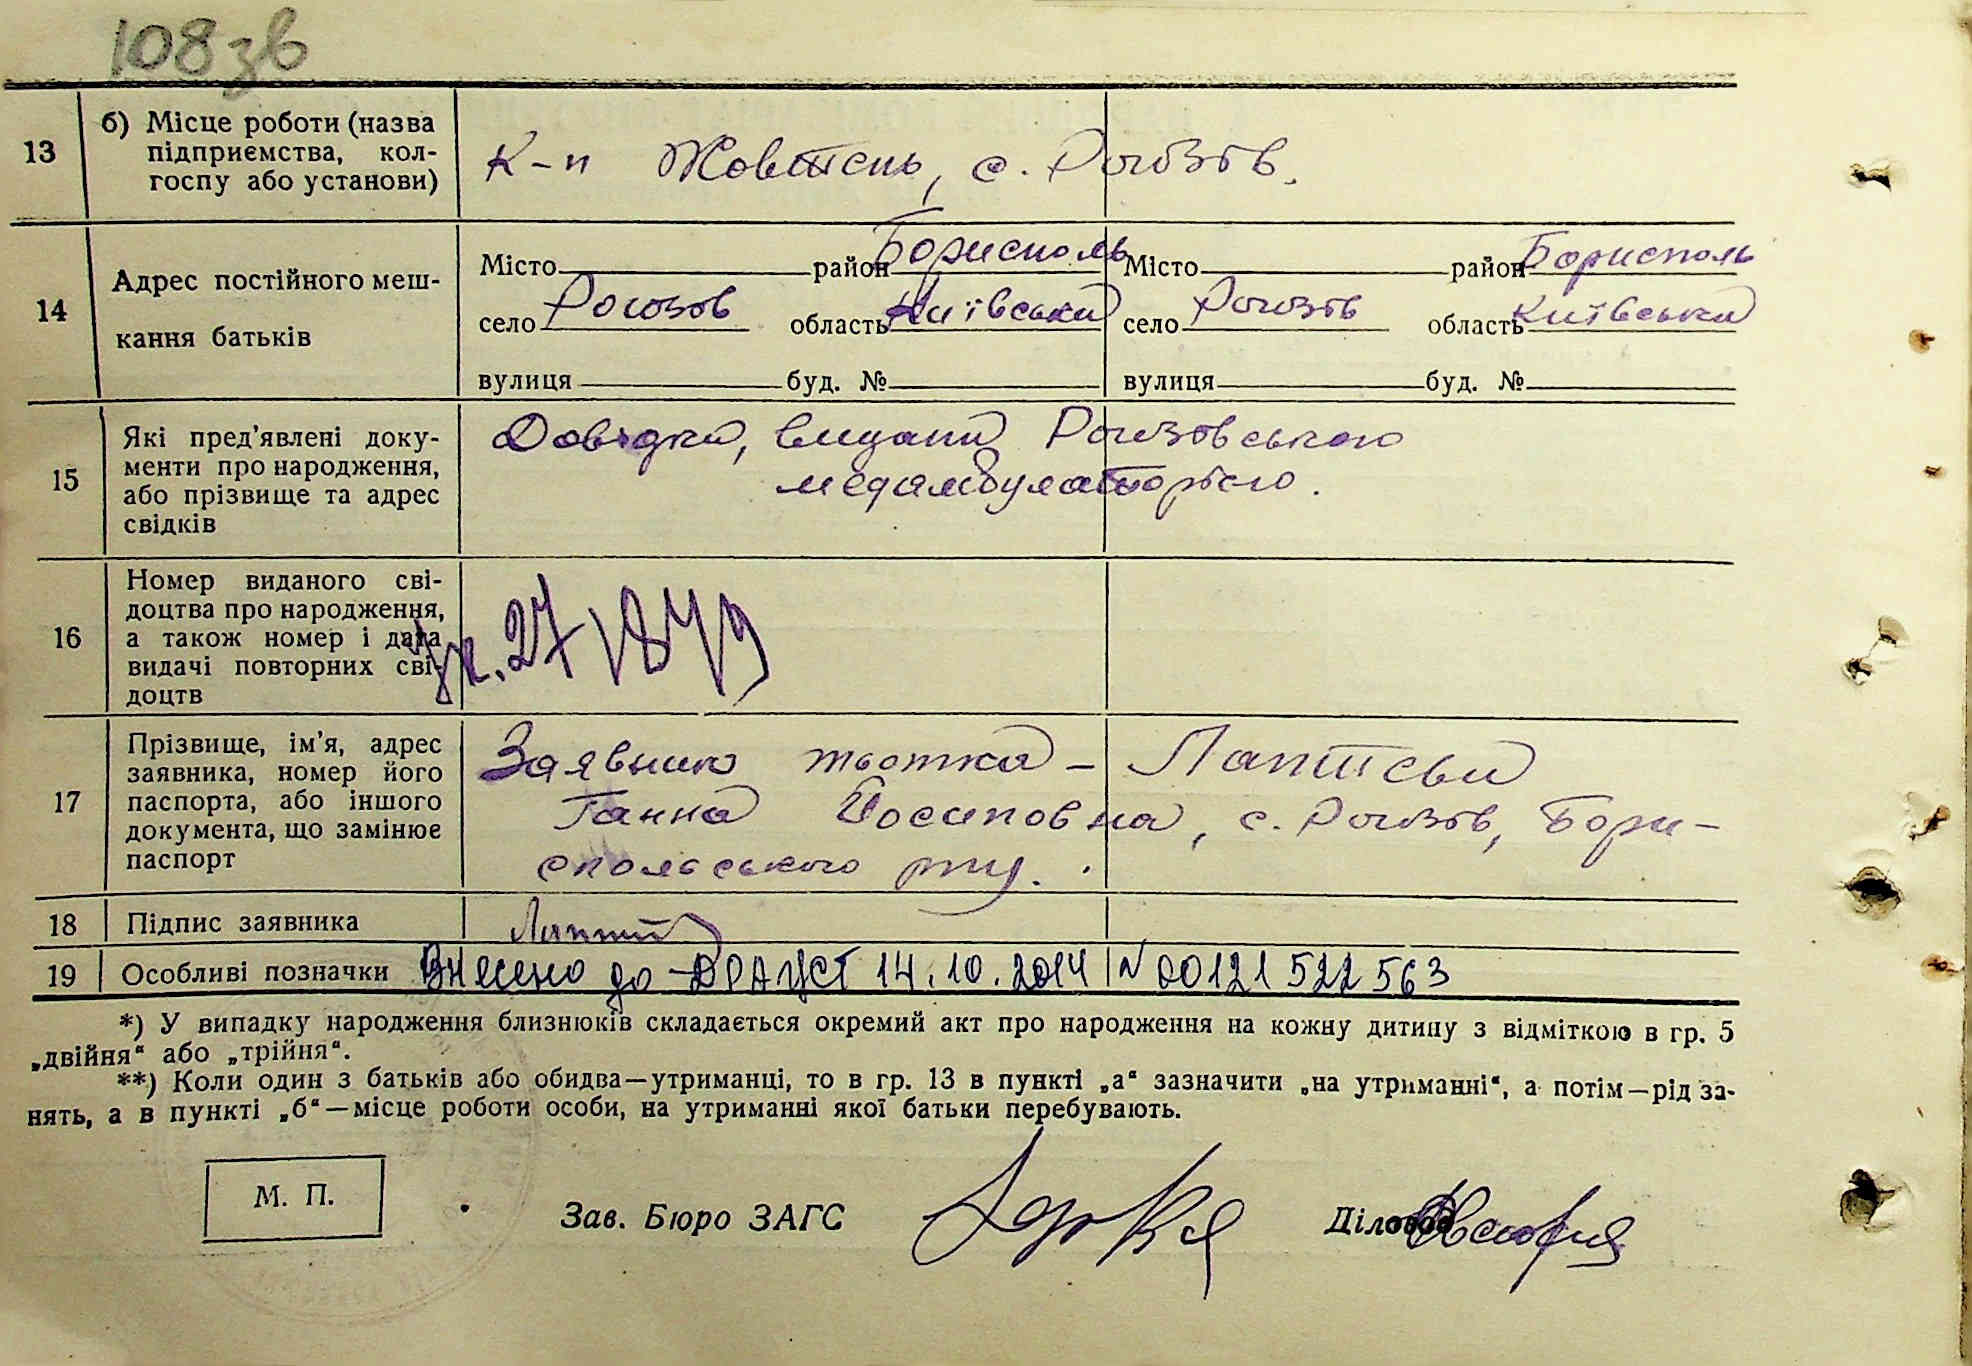 108 зв
13 б) Місце роботи (назва підприємства, кол-госпу або установи) К-п Жовтень, с. Рогозів.
14 Адрес постійного меш-кання батьків
Місто район Бориспіль Місто район Бориспіль
село Рогозів область Київська село Рогозів область Київська
вулиця буд. № вулиця буд. №
15 Які пред'явлені доку-
менти про народження,
або прізвище та адрес
свідків
Довідка, видана Рогозовською
медамбулаторією.
16 Номер виданого сві-
доцтва про народження,
а також номер і дата
видачі повторних сві-
доцтв
27
17 Прізвище, ім'я, адрес
заявника, номер його
паспорта, або іншого
документа, що замінює
паспорт
Заявник тьотка –
Ганна Йосиповна, с. Рогозів, Бори-
спольського р-ну.
18 Підпис заявника
19 Особливі позначки Внесено до ДРАЦСГ 14.10.2014 N 00121522563
*) У випадку народження близнюків складається окремий акт про народження на кожну дитину з відміткою в гр. 5
„двійня“ або „трійня“.
**) Коли один з батьків або обидва—утриманці, то в гр. 13 в пункті „а“ зазначити „на утриманні“, а потім—рід за-
нять, а в пункті „б“—місце роботи особи, на утриманні якої батьки перебувають.
М. П.
Зав. Бюро ЗАГС Діловод